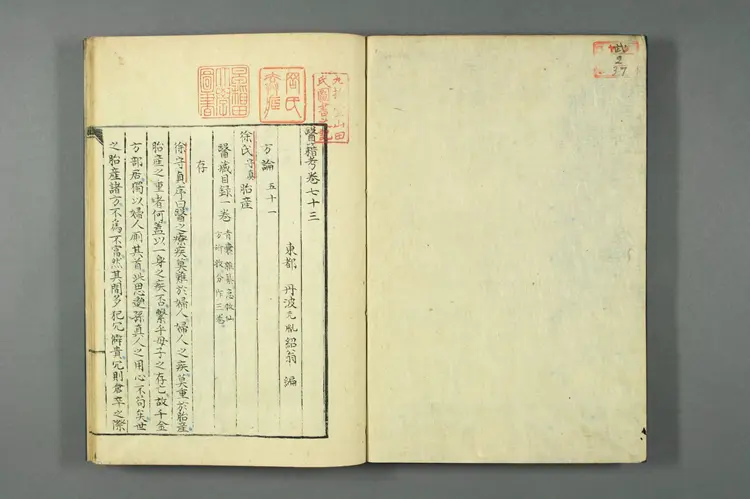 醫籍考卷七十三
東都 丹波元胤紹翁 編
方論 五十一
徐氏守真胎産
醫藏目録一卷
存
徐守貞序曰醫之療疾莫難於婦人婦人之疾莫重於胎産
胎産之重者何蓋以一身之疾否繫乎母子之存亡故千金
方部居獨以婦人廁其首此思邈孫真人之用心不苟矣世
之胎産諸方不爲不富然其間多犯冗僻貴冗則倉卒之際
早稲田大學圖書
2
37